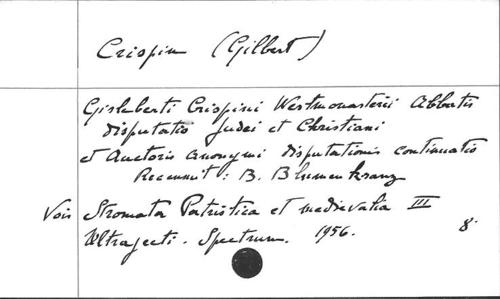 Crispin (Gilbert)
Gisleberti Crispini Westmonasterii Abbatis
disputatio Judei et Christiani
et Auctoris anonymi disputationis continuatio
Recensuit : B. Blumenkranz
Vois Stromata Patristica et mediaevalia III
Ultrajecti. Spectrum. 1956. 8°